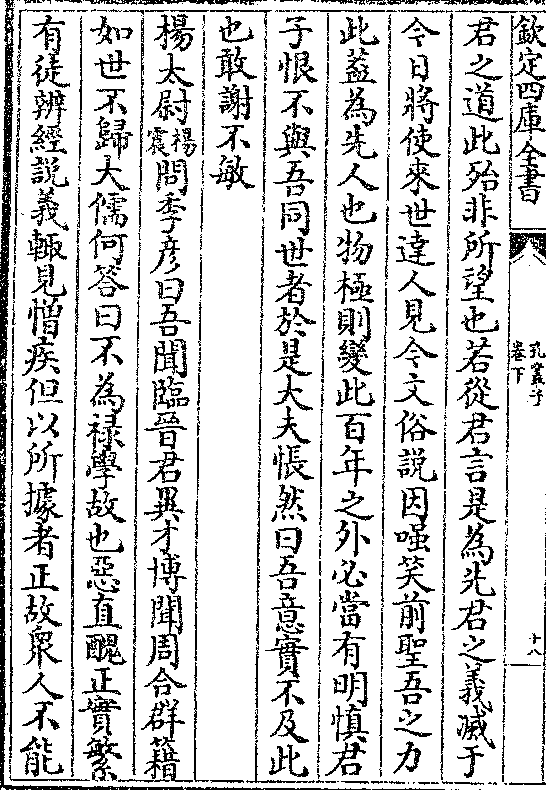 欽定四庫全書
孔叢子
卷下
十八
君之道此殆非所望也若從君言是為先君之義滅于
今日將使來世達人見今文俗說因嗤笑前聖吾之力
此蓋為先人也物極則變此百年之外必當有明慎君
子恨不與吾同世者於是大夫悵然曰吾意實不及此
也敢謝不敏
楊太尉楊震問季彥曰吾聞臨晉君異才博聞周合群籍
如世不歸大儒何答曰不為祿學故也惡直醜正實繁
有徒辨經說義輒見憎疾但以所據者正故衆人不能